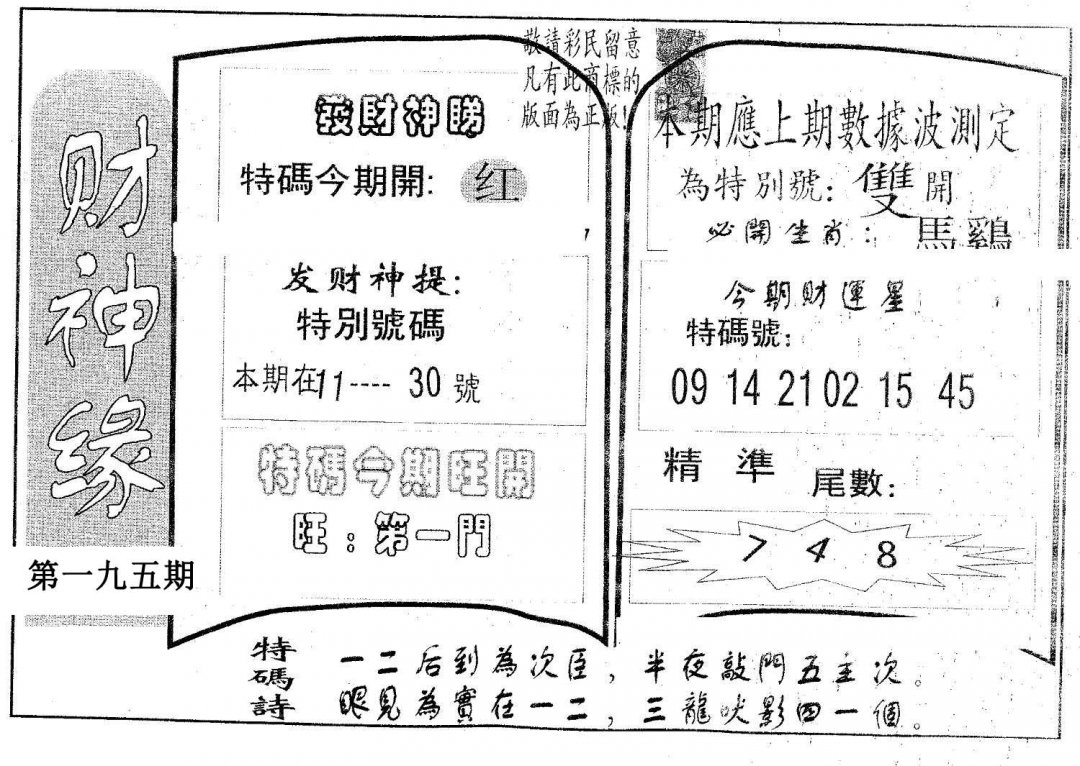 财神缘
第一九五期
敬請彩民留意
凡有此商標的
版面為正版!
發財神睇
特碼今期開: 红
发财神提:
特別號碼
本期在11----30號
特碼今期旺開
旺:第一門
本期應上期數據波測定
為特別號: 雙開
必開生肖: 馬鷄
今期財運星
特碼號:
09 14 21 02 15 45
精準 尾數:
7 4 8
特碼詩
一二后到為次臣,半夜敲門五主次。
眼見為實在一二,三龍吠影四一個。